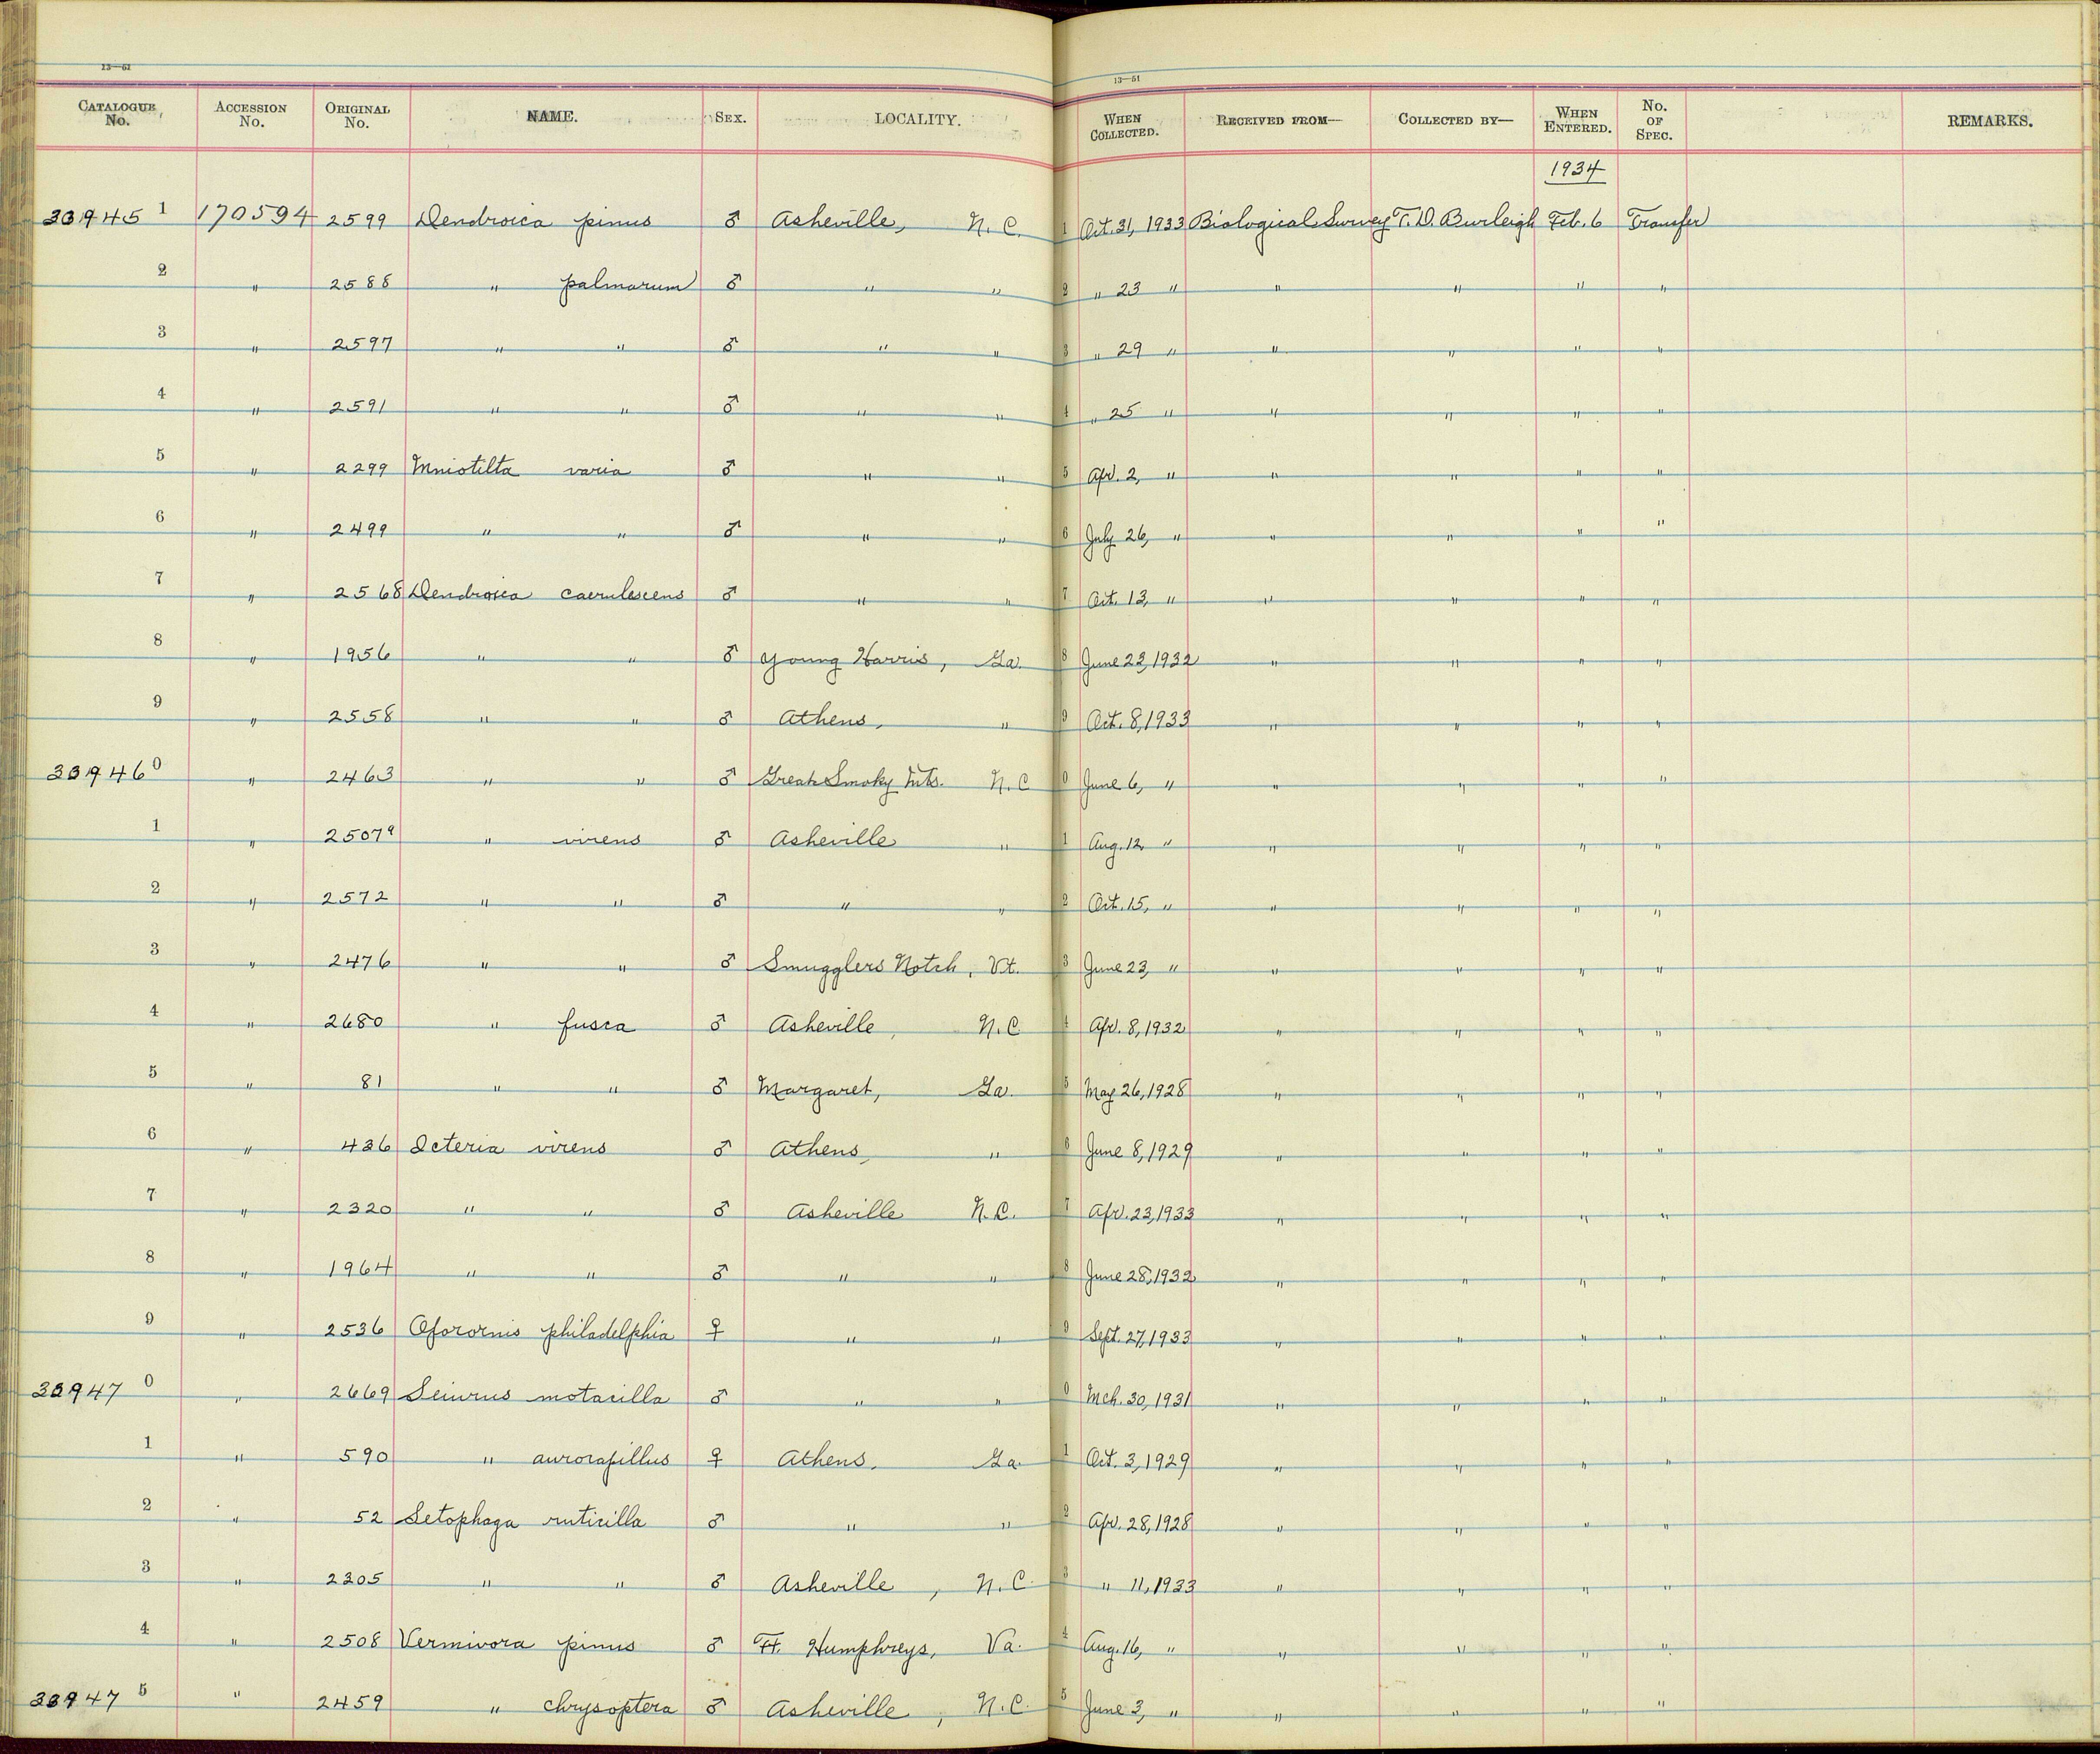 13—51 13—51
CATALOGUE No. ACCESSION No. ORIGINAL No. NAME. SEX. LOCALITY. WHEN COLLECTED. RECEIVED FROM— COLLECTED BY— WHEN ENTERED. No. OF SPEC. REMARKS.
1934
339451 170594 2599 Dendroica pinus ♂ Asheville, N.C. 1 Oct. 31, 1933 Biological Survey T.D. Burleigh Feb. 6 Transfer
2 " 2588 " palmarum ♂ " " 2 " 23 " " " " "
3 " 2597 " " ♂ " " 3 " 29 " " " " "
4 " 2591 " " ♂ " " 4 " 25 " " " " "
5 " 2299 Mniotilta varia ♂ " " 5 Apr. 2, " " " " "
6 " 2499 " " ♂ " " 6 July 26, " " " " "
7 " 2568 Dendroica caerulescens ♂ " " 7 Oct. 13, " " " " "
8 " 1956 " " ♂ Young Harris, Ga. 8 June 23, 1932 " " " "
9 " 2558 " " ♂ Athens, " 9 Oct. 8, 1933 " " " "
339460 " 2463 " " ♂ Great Smoky Mts. N.C 0 June 6, " " " " "
1 " 2507a " virens ♂ Asheville " 1 Aug. 12, " " " " "
2 " 2572 " " ♂ " " 2 Oct. 15, " " " " "
3 " 2476 " " ♂ Smugglers Notch, Vt. 3 June 23, " " " " "
4 " 2680 " fusca ♂ Asheville, N.C 4 Apr. 8, 1932 " " " "
5 " 81 " " ♂ Margaret, Ga. 5 May 26, 1928 " " " "
6 " 436 Icteria virens ♂ Athens, " 6 June 8, 1929 " " " "
7 " 2320 " " ♂ Asheville N.C. 7 Apr. 23, 1933 " " " "
8 " 1964 " " ♂ " " 8 June 28, 1932 " " " "
9 " 2536 Oporornis philadelphia ♀ " " 9 Sept. 27, 1933 " " " "
339470 " 2669 Seiurus motacilla ♂ " " 0 Mch. 30, 1931 " " " "
1 " 590 " aurocapillus ♀ Athens, Ga. 1 Oct. 3, 1929 " " " "
2 " 52 Setophaga ruticilla ♂ " " 2 Apr. 28, 1928 " " " "
3 " 2305 " " ♂ Asheville, N.C. 3 " 11, 1933 " " " "
4 " 2508 Vermivora pinus ♂ Ft. Humphreys, Va. 4 Aug. 16, " " " " "
339475 " 2459 " chrysoptera ♂ Asheville, N.C. 5 June 3, " " " " "